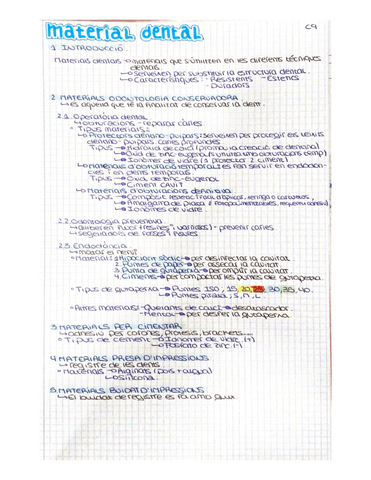 material dental
C9
1. INTRODUCCIÓ.
Materials dentals → materials que s'utilitzen en les diferents tècniques
dentals.
→ Serveixen per substituir la estructura dental.
→ Característiques: - Resistents - Estètics
- Duradors
2. MATERIALS ODONTOLOGIA CONSERVADORA
↳ és aquella que té la finalitat de conservar la dent.
2.1. Operatòria dental
↳ obturacions - reparar càries
* Tipus materials:
↳ Protectors dentino-pulpars: serveixen per protegir els teixits
dentino-pulpars càries profundes
Tipus → Hidròxid de calci (promou la creació de dentina)
→ Òxid de zinc-eugenol
→ Ionòmers de vidre (protector i ciment)
↳ Materials d'obturació temporal: es fan servir en endodòn-
cies i en dents temporals.
Tipus → Òxid de zinc-eugenol
→ Ciment CAVIT
↳ Materials d'obturacions definitiva
Tipus → Composit
→ Amalgama de plata
→ Ionòmers de vidre.
2.2. Odontologia preventiva
↳ Alliberen fluor (resines i varnissos) - prevenir càries
↳ Segelladors de fosses i fisures
2.3. Endodòncia
↳ matar el nervi
* Materials: 1. Hipoclorit sòdic → per desinfectar la cavitat
2. Puntes de paper → per assecar la cavitat
3. Puntes de gutapercha → per omplir la cavitat.
4. Ciments → per compactar les puntes de gutapercha.
* Tipus de gutapercha → Puntes ISO, 15, 20, 25, 30, 35, 40.
↳ Puntes S, M, L.
* Altres materials → Quelants de calci →
- Mentol → per desfer la gutapercha
3. MATERIALS PER CIMENTAR
↳ adhesiu per corones, pròtesis, brackets...
* Tipus de ciment → Ionòmer de vidre (+)
→ Fosfato de zinc (-)
4. MATERIALS PRESA D'IMPRESSIONS
↳ registre de les dents
* Materials → Alginats (pols + aigua)
↳ silicona
5. MATERIALS BUIDAT D'IMPRESSIONS
↳ El buidat de registre es fa amb guix